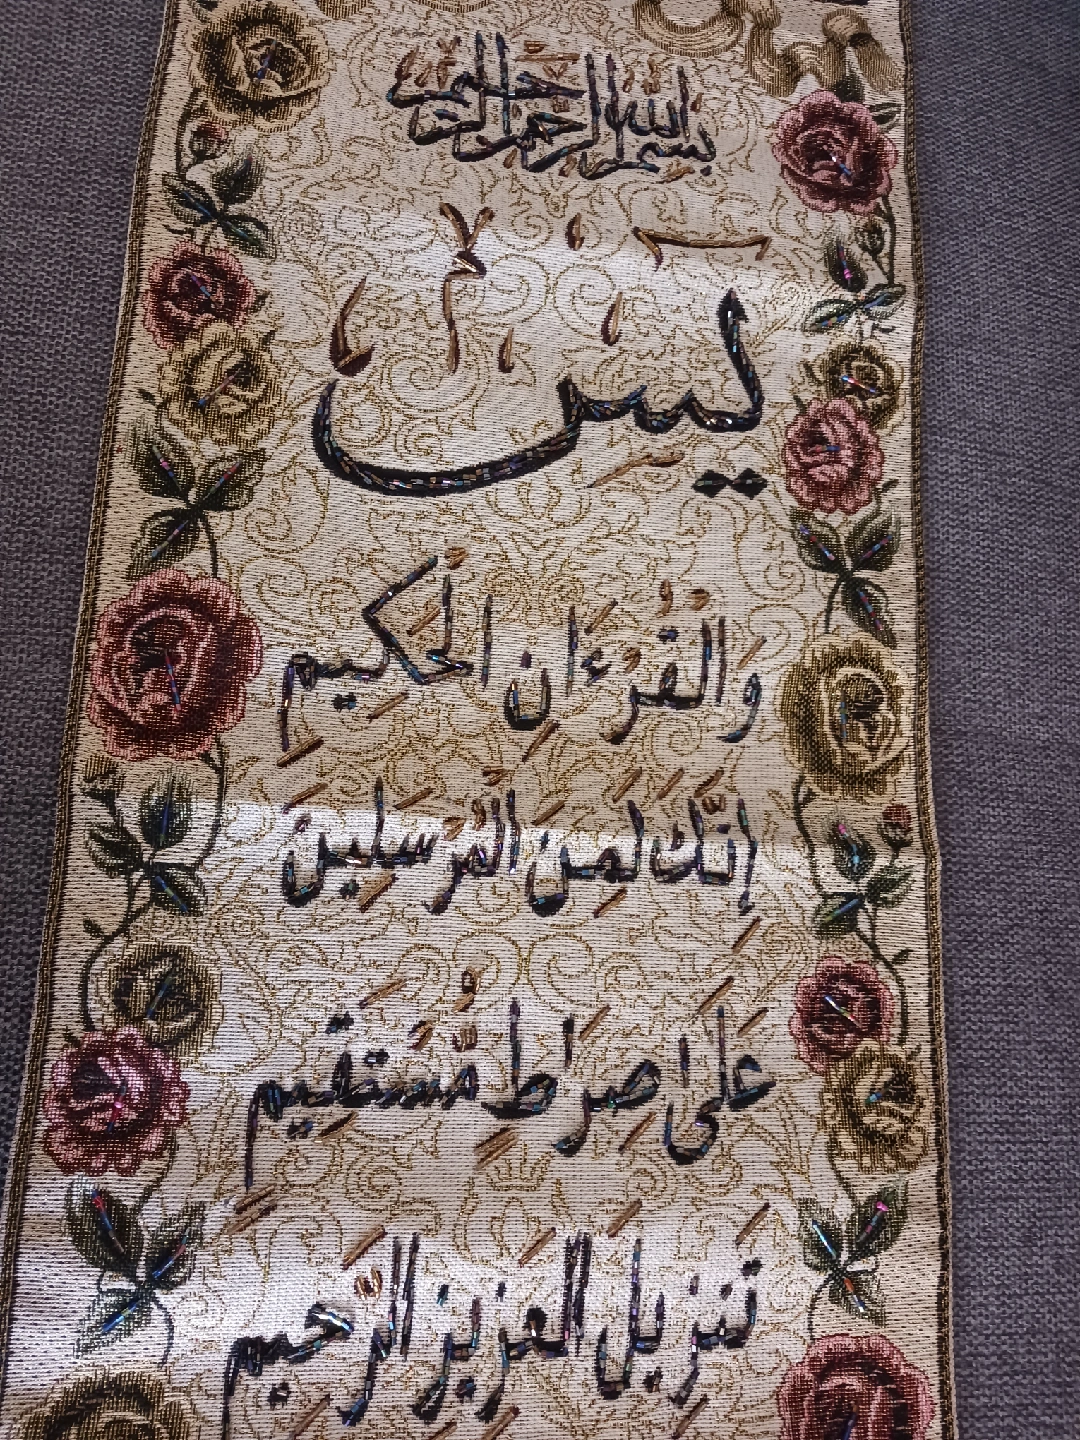 بِسْمِ اللهِ الرَّحْمٰنِ الرَّحِيمِ
يٰسٓ
وَالْقُرْءَانِ الْحَكِيمِ
اِنَّكَ لَمِنَ الْمُرْسَلِينَ
عَلَىٰ صِرَاطٍ مُّسْتَقِيمٍ
تَنْزِيلَ الْعَزِيزِ الرَّحِيمِ